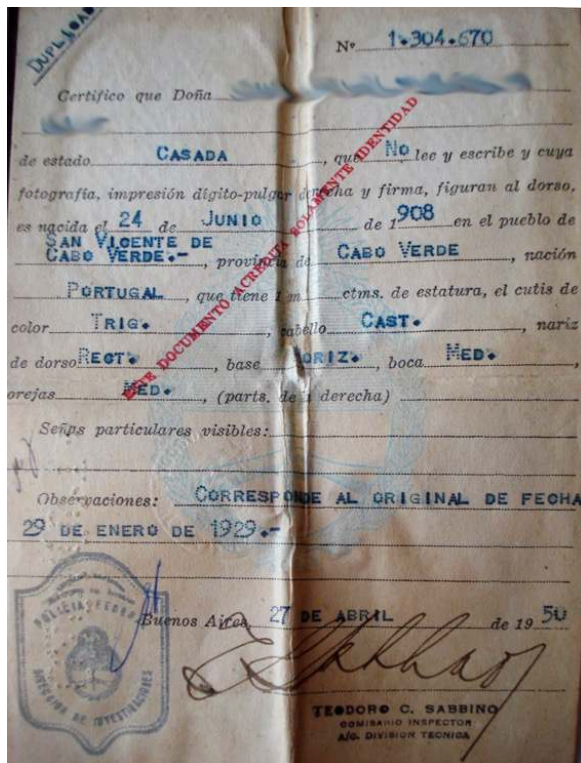 DUPLICADO
Nº 1.304.670
Certifico que Doña
de estado CASADA, que No lee y escribe y cuya
fotografía, impresión dígito-pulgar derecha y firma, figuran al dorso,
es nacida el 24 de JUNIO de 1908 en el pueblo de
SAN VICENTE DE
CABO VERDE.-, provincia de CABO VERDE, nación
PORTUGAL, que tiene 1 m ctms. de estatura, el cutis de
color TRIG., cabello CAST., nariz
de dorso RECT., base ORIZ., boca MED.,
orejas MED., (parts. de derecha)
Señas particulares visibles:
Observaciones: CORRESPONDE AL ORIGINAL DE FECHA
29 DE ENERO DE 1929.-
Buenos Aires, 27 DE ABRIL de 1950
ESTE DOCUMENTO ACREDITA SOLAMENTE IDENTIDAD
POLICIA FEDERAL
DIRECCION DE INVESTIGACIONES
TEODORO C. SABBINO
COMISARIO INSPECTOR
A/C. DIVISION TECNICA